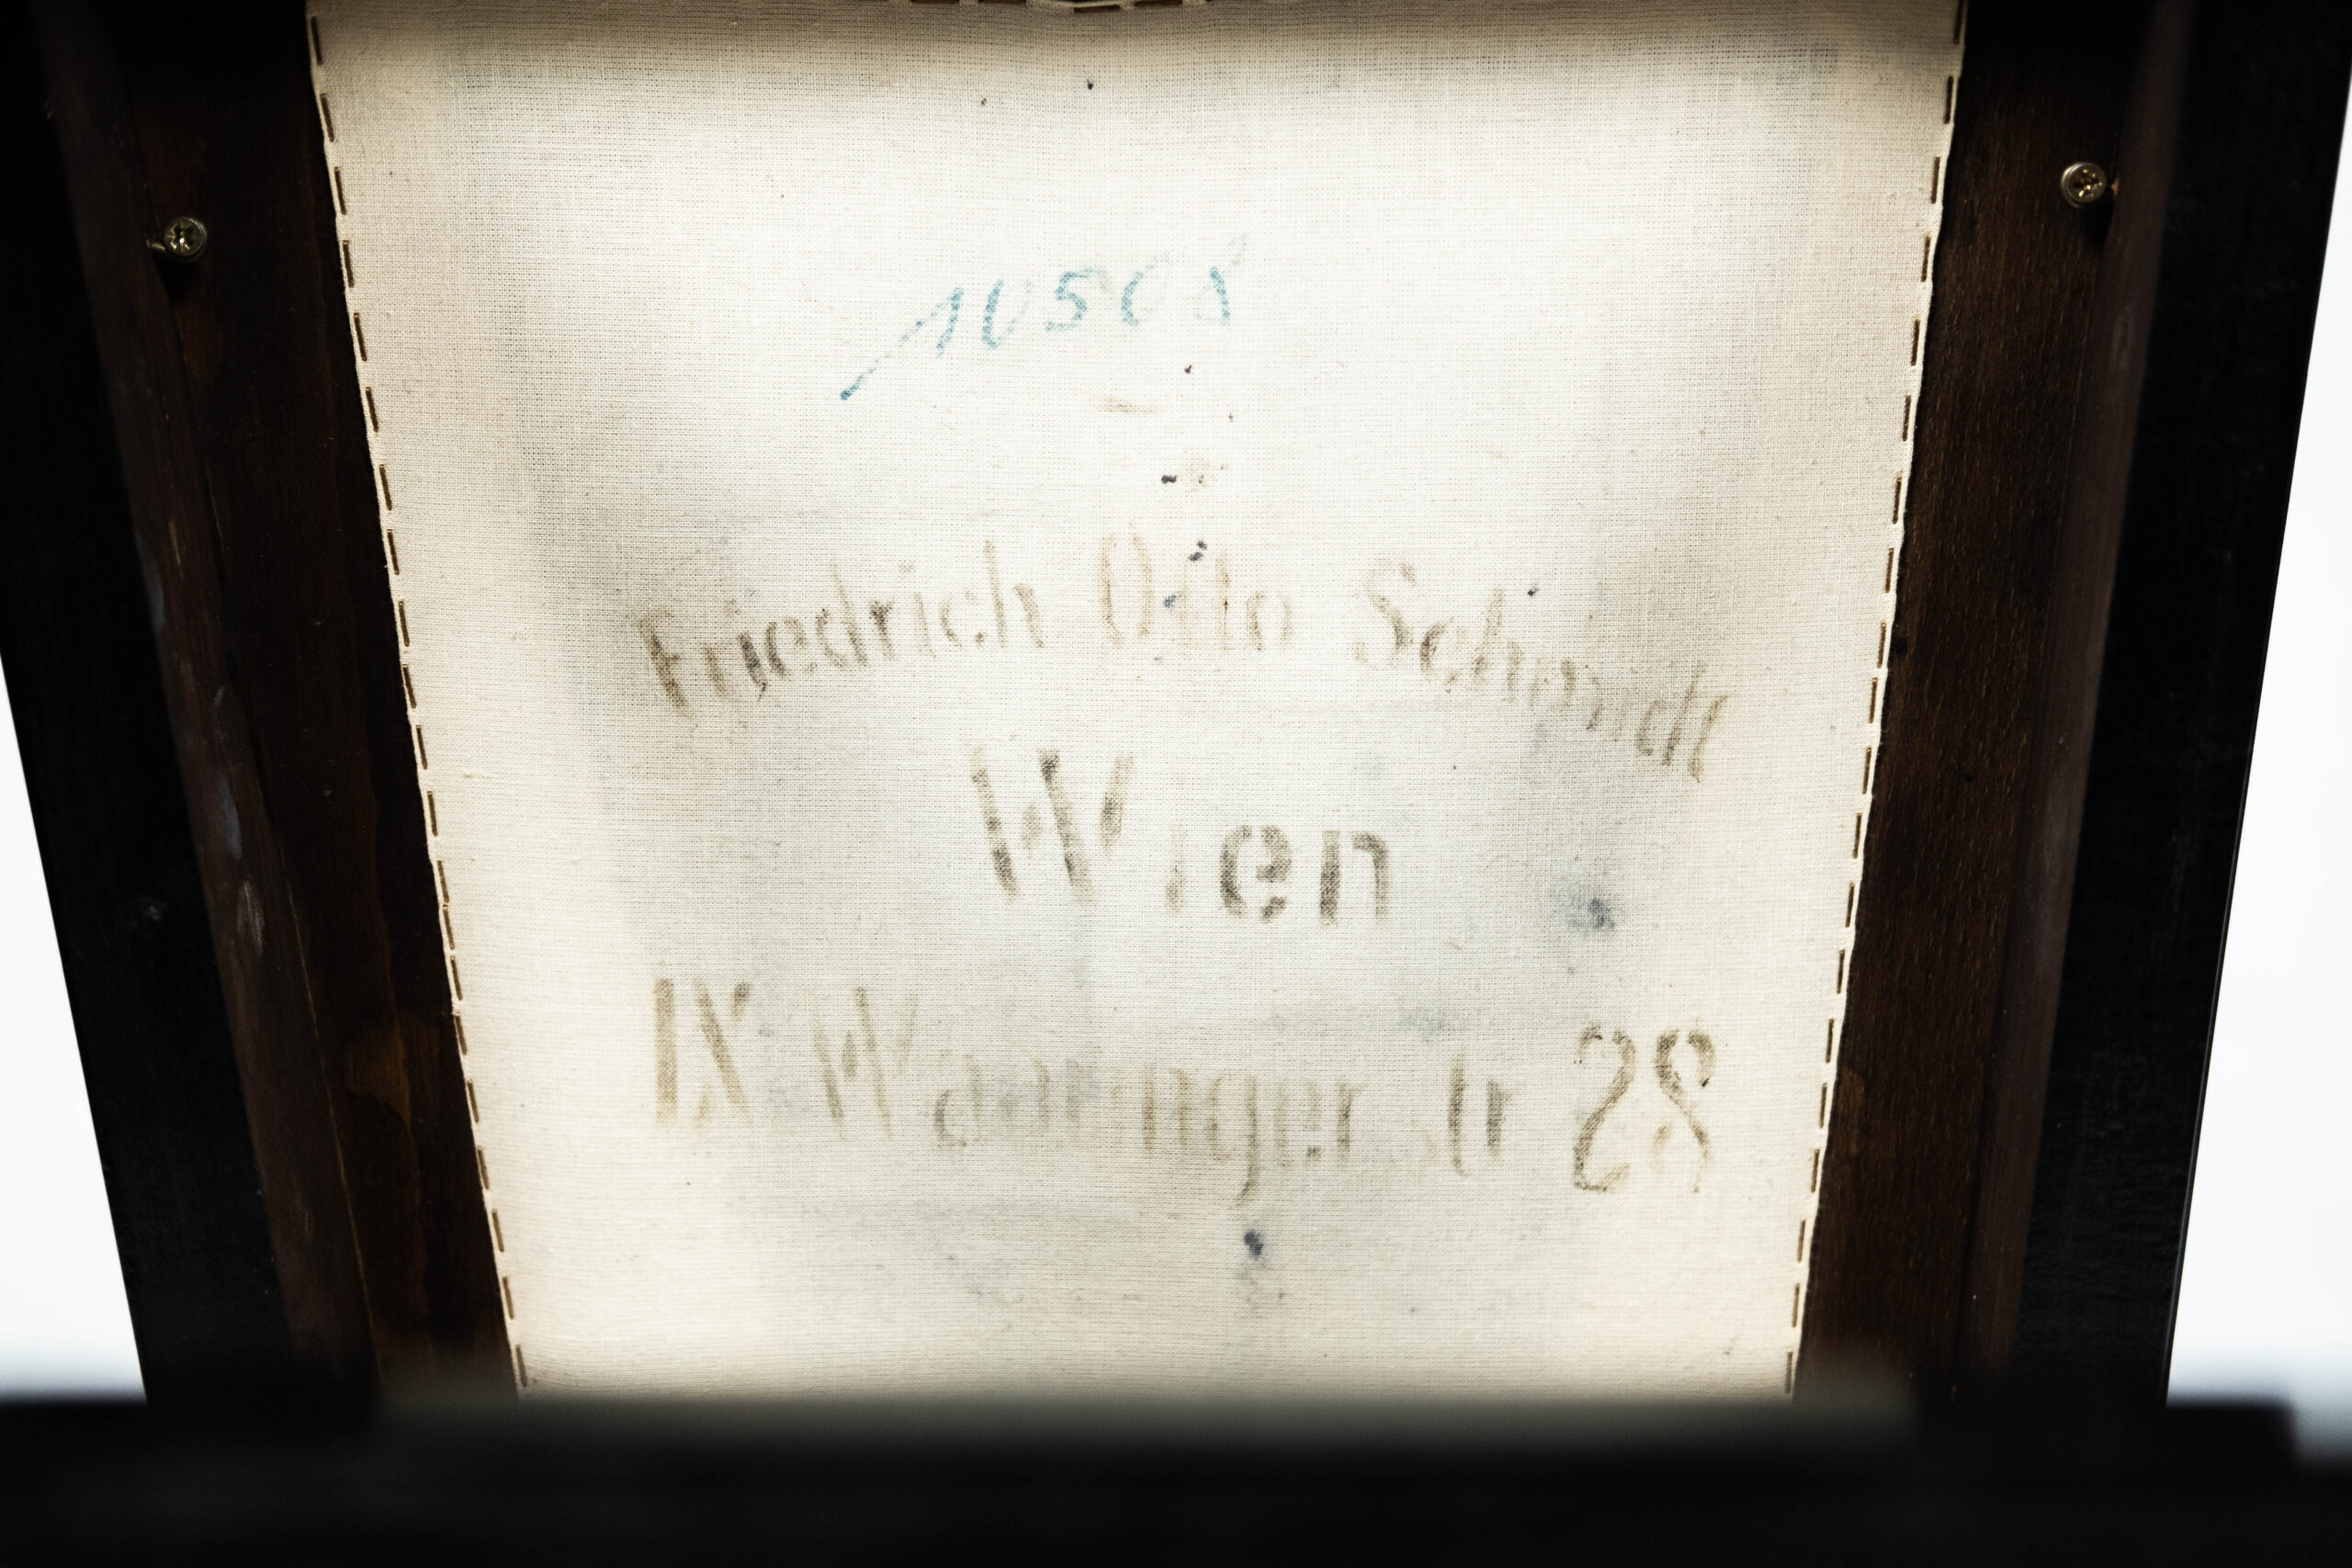 10508
Friedrich Otto Schmidt
Wien
IX Waehringer str 28